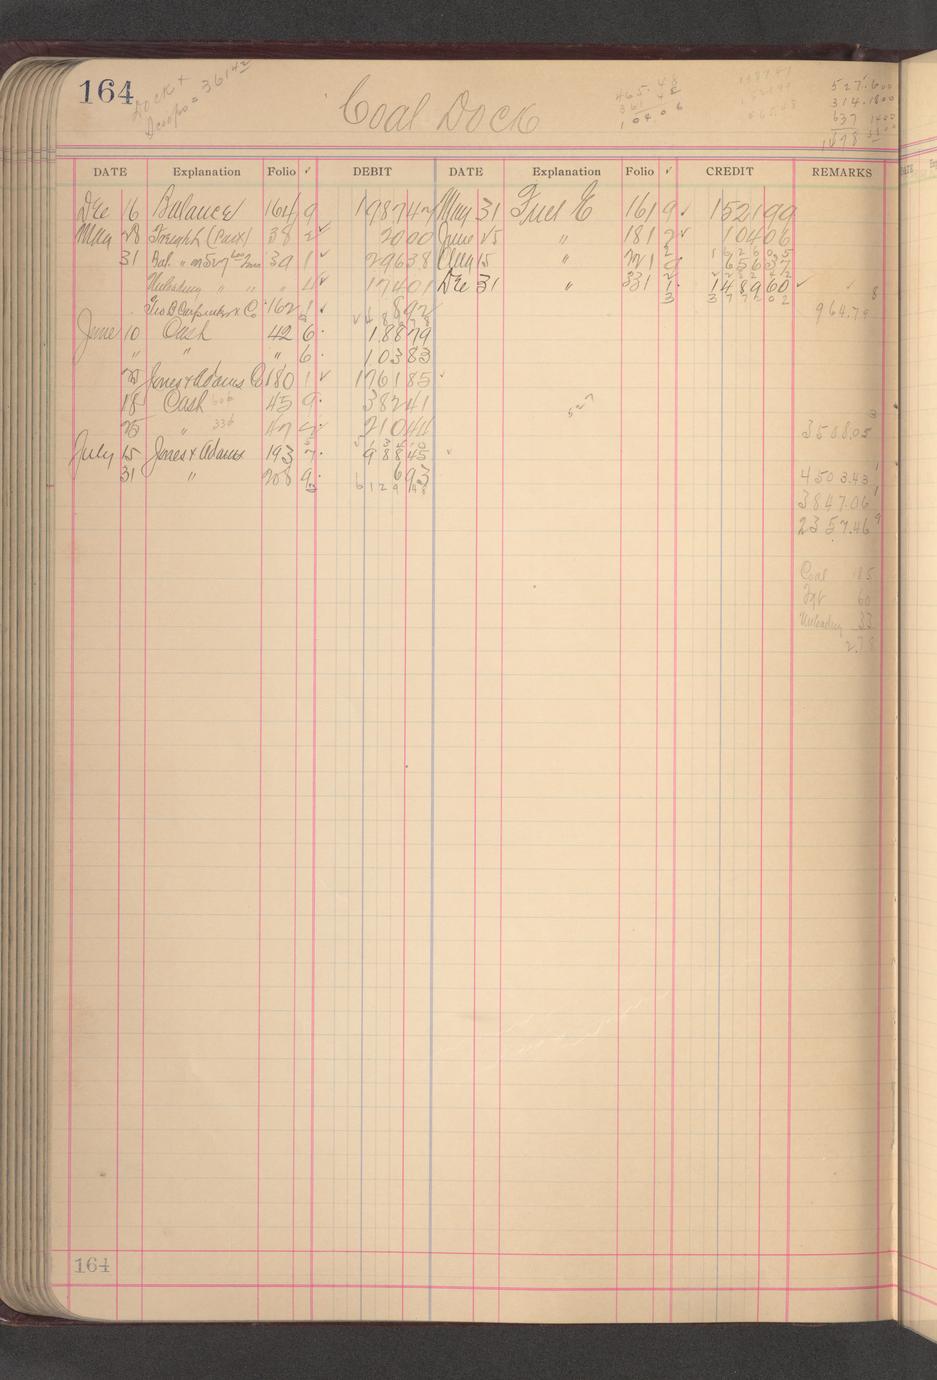 164
Dock +
Coal Dock
465.48
361 42
104.06
527.600
314.1800
637 1400
1598
DATE Explanation Folio ✓ DEBIT DATE Explanation Folio ✓ CREDIT REMARKS
Dec 16 Balance 164 9 1987 42 May 31 Fuel % 161 9 ✓ 1521 99
May 28 Freight (Park) 38 2 ✓ 20 00 June 25 " 181 2 ✓ 104 06
31 Bal. " 39 1 ✓ 296 38 Aug 15 " 221 656 37
Unloading " " " 4 ✓ 174 01 Dec 31 " 331 1 1489 60 ✓
Geo B Carpenter & Co 162 1 ✓ 8 92
3 3772 02
964.79
June 10 Cash 42 6 188 79
" " " 6 103 83
Jones & Adams Co 180 1 ✓ 1761 85
18 Cash 606 45 9 382 41
25 " 336 47 210 44
3508.05
July 15 Jones & Adams 193 7 988 45
31 " 208 9 6 93
6129 48
4503.43
3847.06
2357.46
Coal 185
Fgt 60
Unloading 33
2.78
164